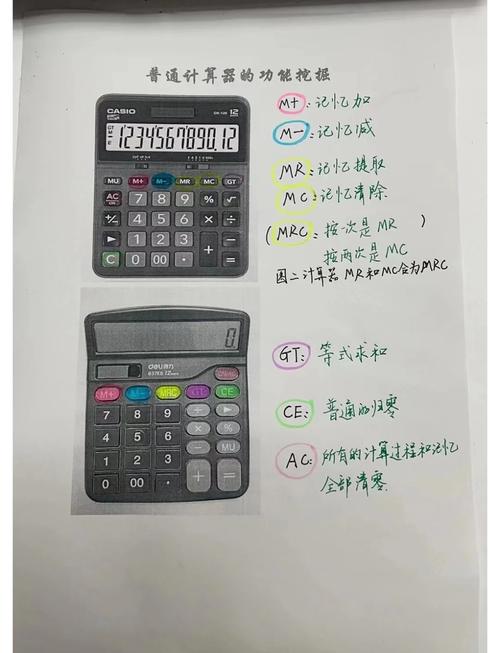 普通计算器的功能挖掘
CASIO
12
1234567890.12
MU M+ M- MR MC GT
AC 7 8 9 % √
+/- 4 5 6 × ÷
▶ 1 2 3 + -
C 0 00 · =
M+:记忆加
M-:记忆减
MR:记忆提取
MC:记忆清除
(MRC:按一次是MR
按两次是MC)
图二计算器MR和MC合为MRC
0
deli得力
M+ M- MRC GT CE
7 8 9 ÷ ▶
4 5 6 × %
1 2 3 - MU
0 00 · + =
GT:等式求和
CE:普通的归零
AC:所有的计算过程和记忆
全部清零